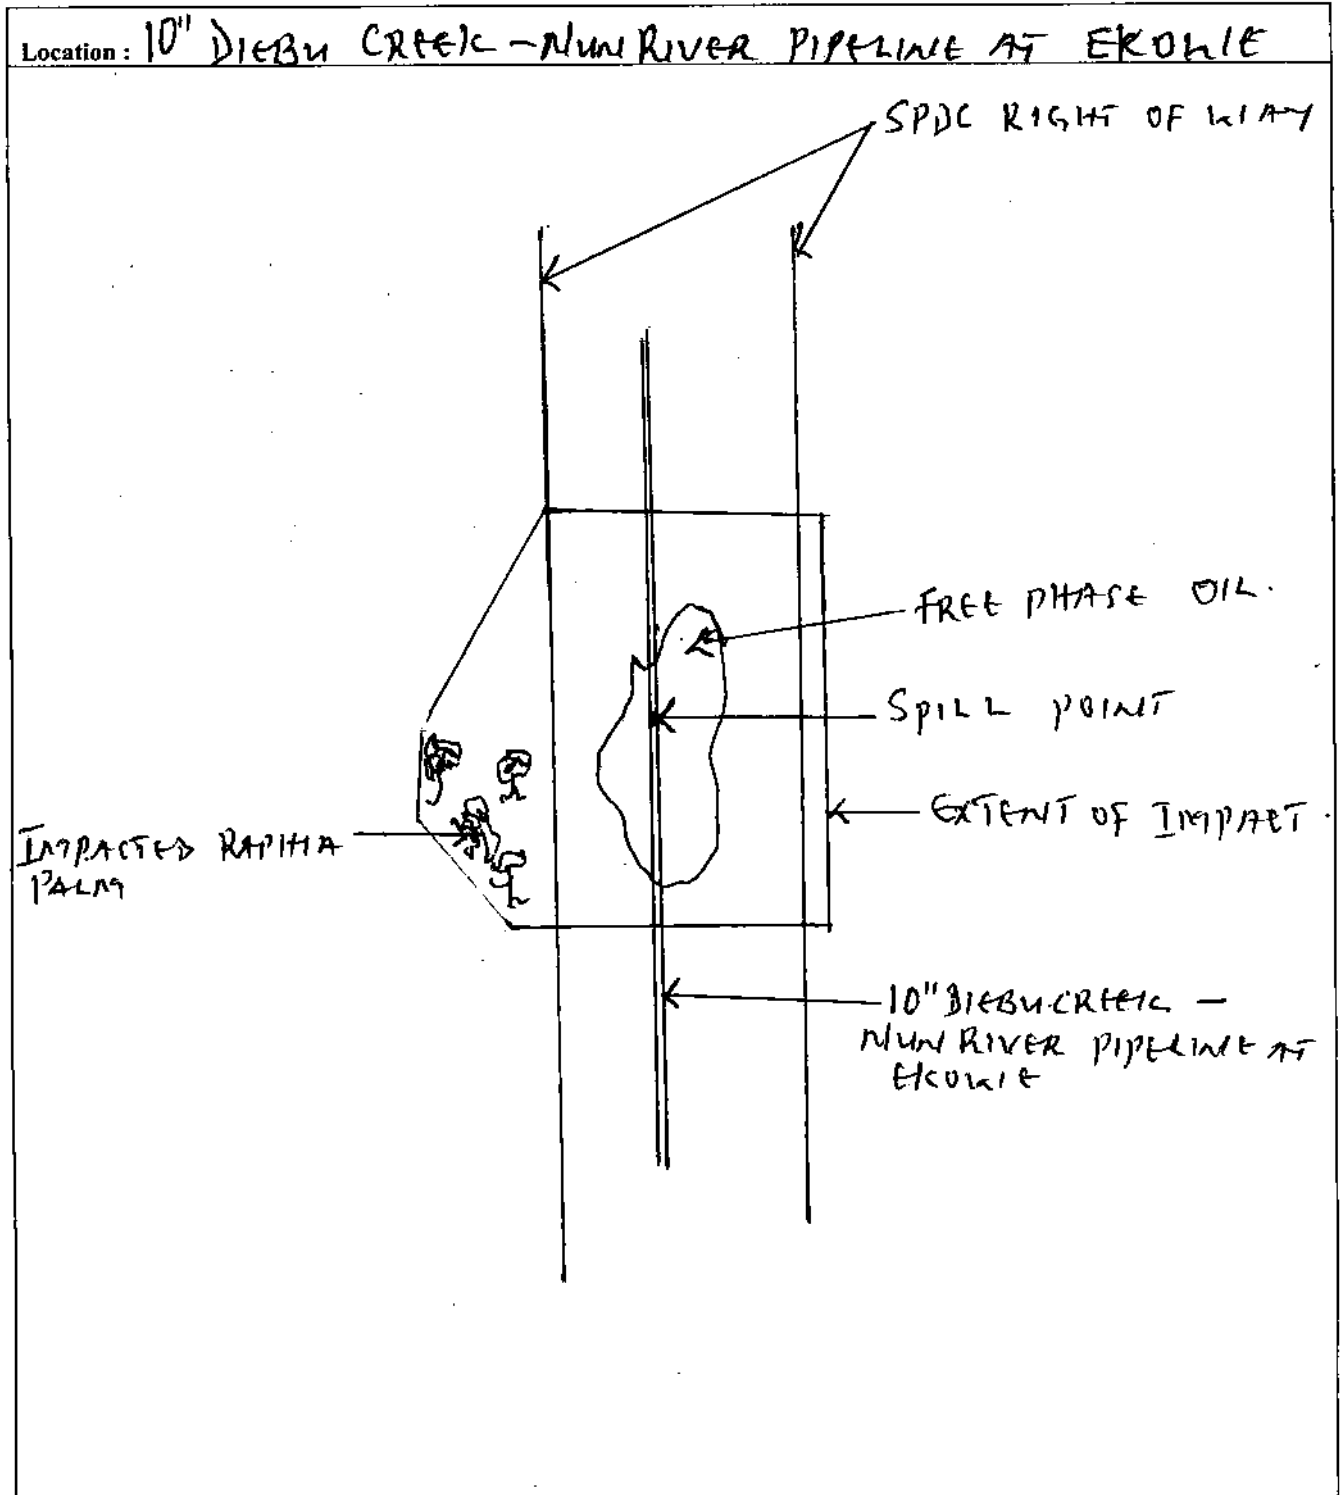 Location : 10" DIEBU CREEK - NUN RIVER PIPELINE AT EKOWE
SPDC RIGHT OF WAY
FREE PHASE OIL.
SPILL POINT
EXTENT OF IMPACT.
IMPACTED RAPHIA
PALM
10" DIEBU CREEK -
NUN RIVER PIPELINE AT
EKOWE